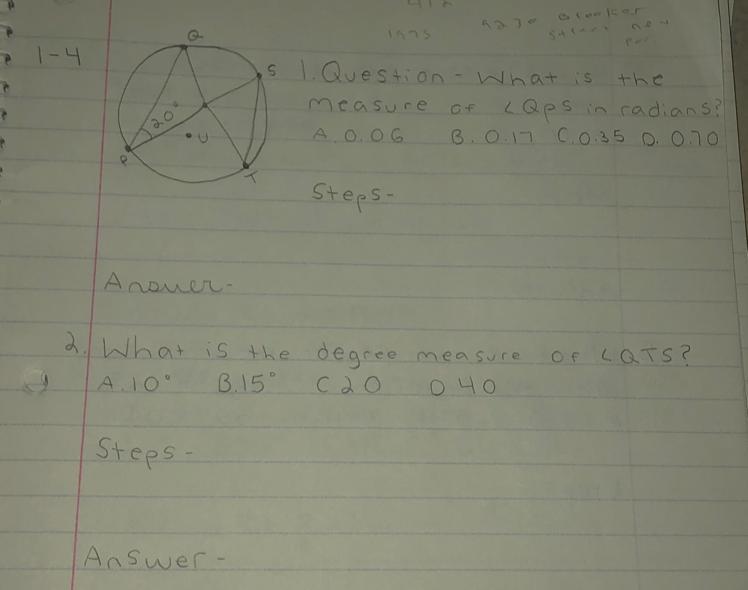 1-4
Q
S
20°
U
P
T
1. Question - What is the
measure of ∠QPS in radians?
A. 0.06 B. 0.17 C. 0.35 D. 0.70
Steps-
Answer-
2. What is the degree measure of ∠QTS?
A. 10° B. 15° C 20 D 40
Steps-
Answer-